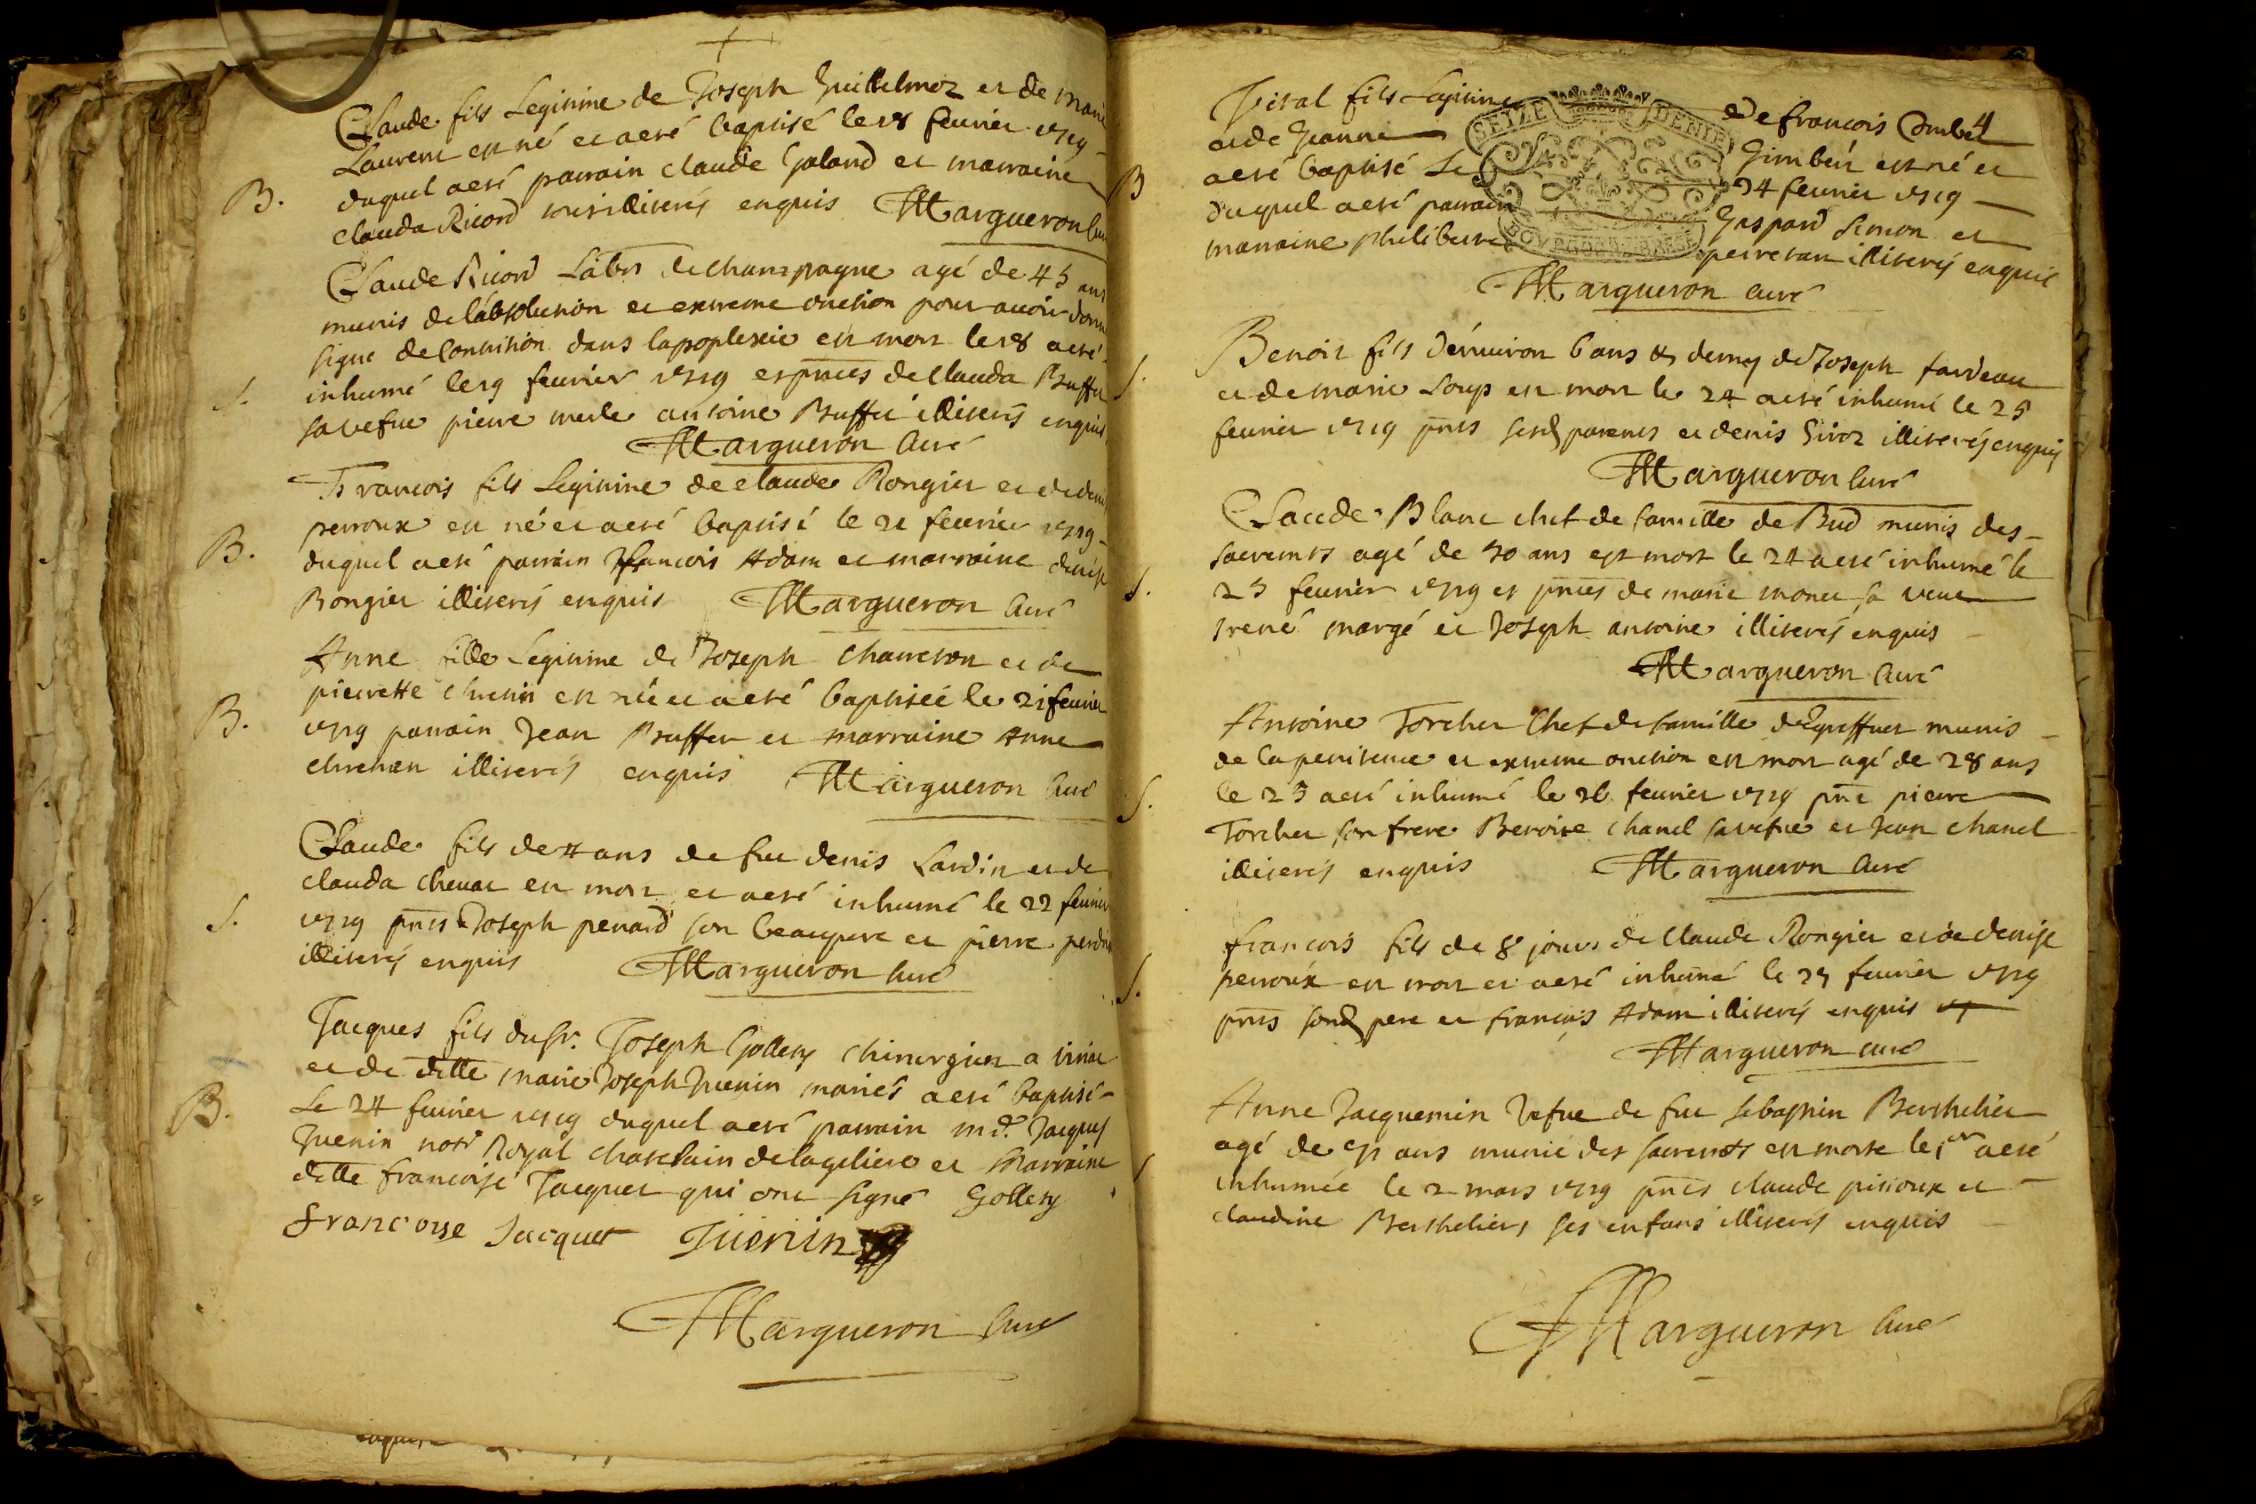 Claude fils Legitime de Joseph Guillelmoz et de Marie
Laurent est né et a eté baptisé le 18 feurier 1719
duquel a eté parrain claude Galand et marraine
clauda Ricord illiterés enquis Margueron Curé
B.
Claude Ricord Labr de champagne agé de 45 ans
munis de l'absolution et extreme onction pour auoir donné
signe de Contrition dans lapoplexie est mort le 18 a eté
inhumé le 19 feurier 1719 es pnces de Clauda Buffet
sa vefue pierre merle antoine Buffet illiterés enquis
S.
Margueron Curé
Francois fils Legitime de claude Rongier et de denise
perroux est né et a eté baptisé le 21 feurier 1719
duquel a eté parrain francois Adam et marraine denise
Rongier illiterés enquis Margueron Curé
B.
Anne fille Legitime de Joseph chanelon et de
pierrette chretien est née et a eté baptisée le 21 feurier
1719 parrain Jean Buffet et marraine Anne
chretien illiterés enquis Margueron Curé
B.
Claude fils de 4 ans de feu denis Lardin et de
clauda cheuat est mort et a eté inhumé le 22 feurier
1719 pnts Joseph penard son beaupere et pierre perdrix
illiterés enquis Margueron Curé
S.
Jacques fils du Sr. Joseph Golléty chirurgien a
et de dlle marie Joseph Juenin mariés a eté baptisé
Le 24 feurier 1719 duquel a eté parrain md. Jacques
Juenin notr Royal chatelain de lageliere et Marraine
dlle francoise Jacquet qui ont signé Golléty
B.
Francoise Jacquet Juenin
Margueron Curé
4
Vital fils Legitime de francois Combet
et de Jeanne est né et
a eté baptisé Le 24 feurier 1719
duquel a eté parrain Gaspard Simon et
marraine philiberte perretan illiterés enquis
B
SEIZE DENIE
BOVRGOGNE BRESSE
Margueron Curé
Benoit fils d'enuiron 6 ans & demy de Joseph fardeau
et de marie Loup est mort le 24 a eté inhumé le 25
feurier 1719 pnts sesd parents et denis Giroz illiterés enquis
S.
Margueron Curé
Claude Blanc chef de famille de Bud munis des
sacremts agé de 50 ans est mort le 24 a eté inhumé le
25 feurier 1719 es pnces de marie monet sa veue
irené margé et Joseph antoine illiterés enquis
S.
Margueron Curé
Antoine Torcher Chef de famille munis
de la penitence et extreme onction est mort agé de 28 ans
le 25 a eté inhumé le 26 feurier 1719 pnt pierre
Torcher son frere Benoite chanel sa vefue et Jean chanel
illiterés enquis Margueron Curé
S.
francois fils de 8 jours de Claude Rongier et de denise
perroux est mort et a eté inhumé le 27 feurier 1719
pnts sond pere et francois Adam illiterés enquis
S.
Margueron curé
Anne Jacquemin Vefue de feu sebastien Berthelier
agé de ans munie des sacremts est morte le 1er a eté
inhumée le 2 mars 1719 pnts claude piroux et
claudine Berthelier, ses enfans illiterés enquis
S
Margueron Curé